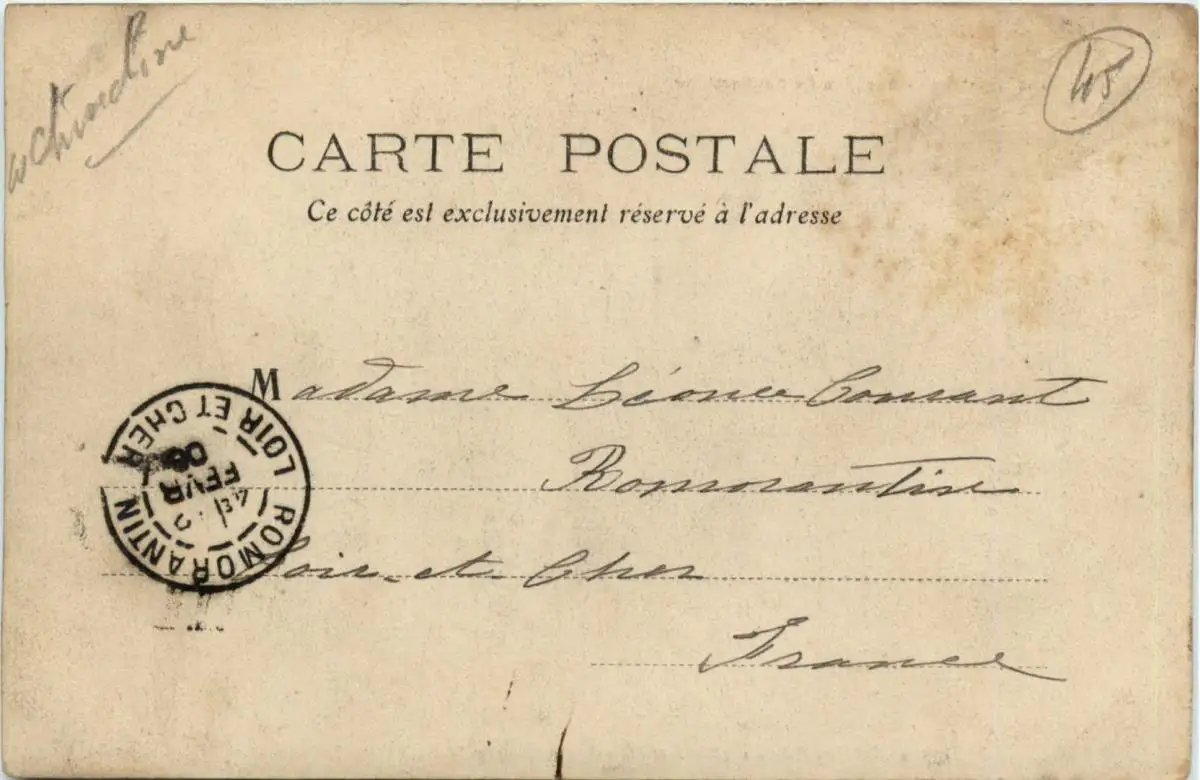 45
CARTE POSTALE
Ce côté est exclusivement réservé à l'adresse
Madame Léonce Courant
Romorantin
Loir-et-Cher
France
ROMORANTIN
LOIR ET CHER
FEVR